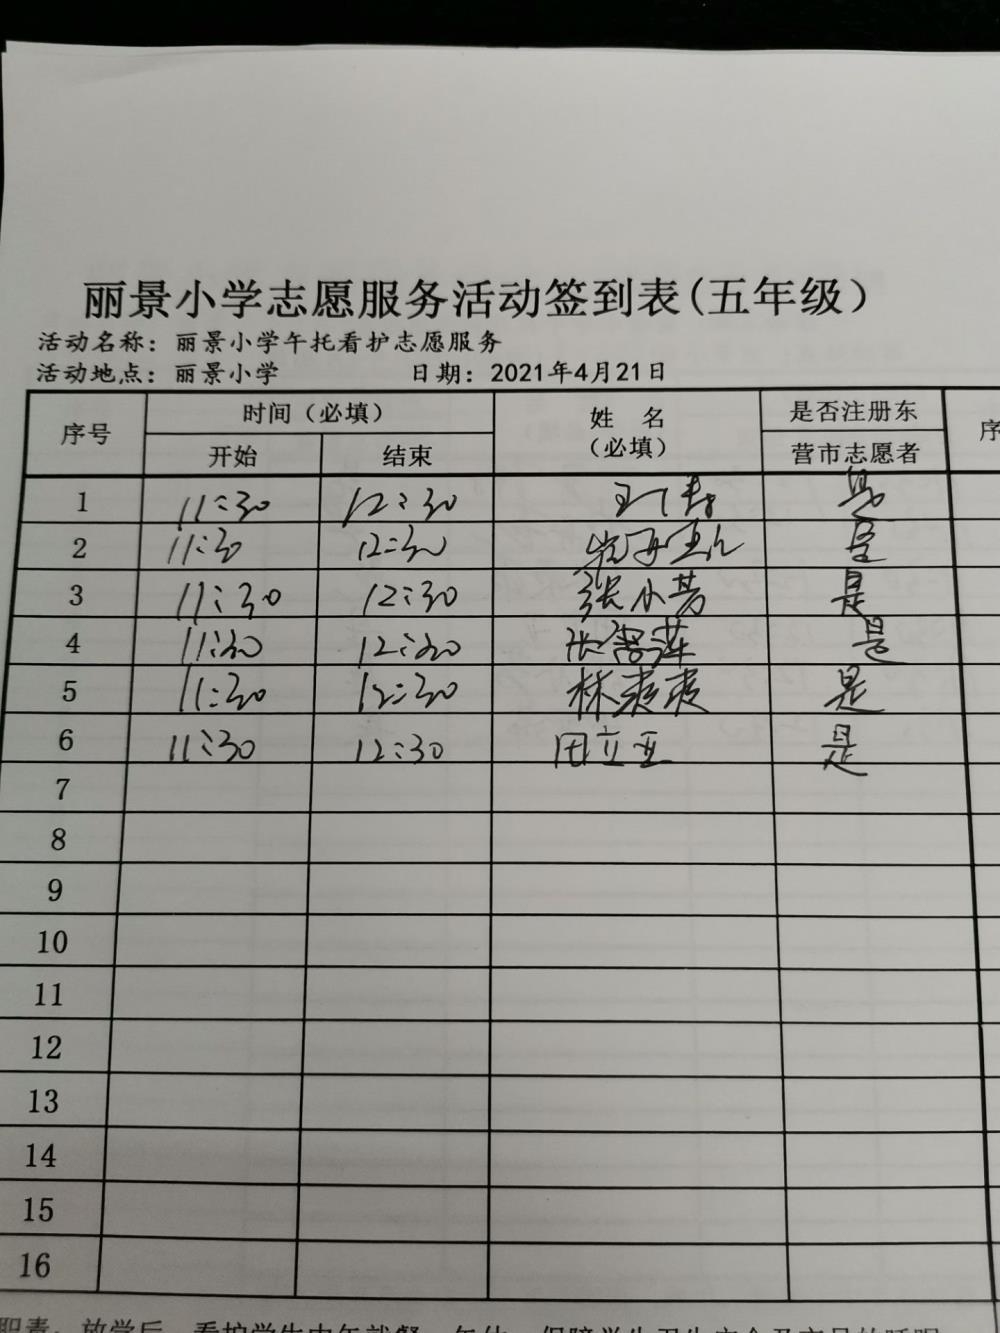 丽景小学志愿服务活动签到表(五年级）
活动名称：丽景小学午托看护志愿服务
活动地点：丽景小学 日期：2021年4月21日
序号 时间（必填） 姓 名 是否注册东 序
开始 结束 （必填） 营市志愿者
1 11:30 12:30 是
2 11:30 12:30 是
3 11:30 12:30 张小芳 是
4 11:30 12:30 是
5 11:30 12:30 林爽爽 是
6 11:30 12:30 田立亚 是
7
8
9
10
11
12
13
14
15
16
职责：放学后，看护学生中午就餐、午休，保障学生卫生安全及充足的睡眠